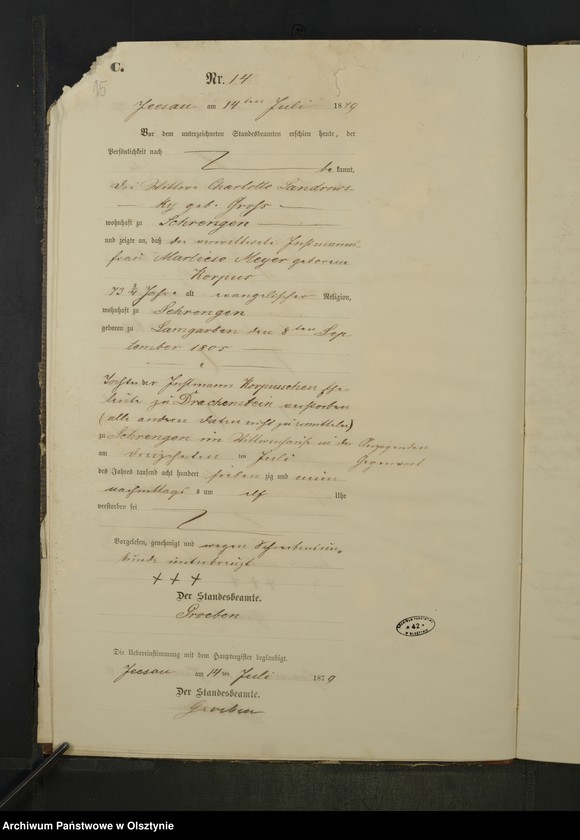 C.
15
Nr. 14
Jeesau am 14ten Juli 1879
Vor dem unterzeichneten Standesbeamten erschien heute, der
Persönlichkeit nach
be kannt,
die Wittwe Charlotte Landrows-
ky geb. Gross
wohnhaft zu Sehrengen
und zeigte an, daß die verwittwete Instmanns-
frau Marliese Meyer geborene
Korpus
73 3/4 Jahre alt evangelischer Religion,
wohnhaft zu Sehrengen
geboren zu Lamgarben den 8ten Sep-
tember 1805
Tochter der Instmann Korpusschen Ehe-
leute zu Drachenstein verstorben
(alle andern Daten nicht zu ermitteln)
zu Sehrengen im Wittwenhause in der
Gegenwart
am dreizehnten ten Juli
des Jahres tausend acht hundert sieben zig und neun
nachmittags um elf Uhr
verstorben sei
Vorgelesen, genehmigt und wegen Schreibensun-
kunde unterkreuzt
+ + +
Der Standesbeamte.
Groeben
Die Uebereinstimmung mit dem Hauptregister beglaubigt.
Jeesau am 14 ten Juli 1879
Der Standesbeamte.
Groeben
* 42 *
Archiwum Państwowe w Olsztynie